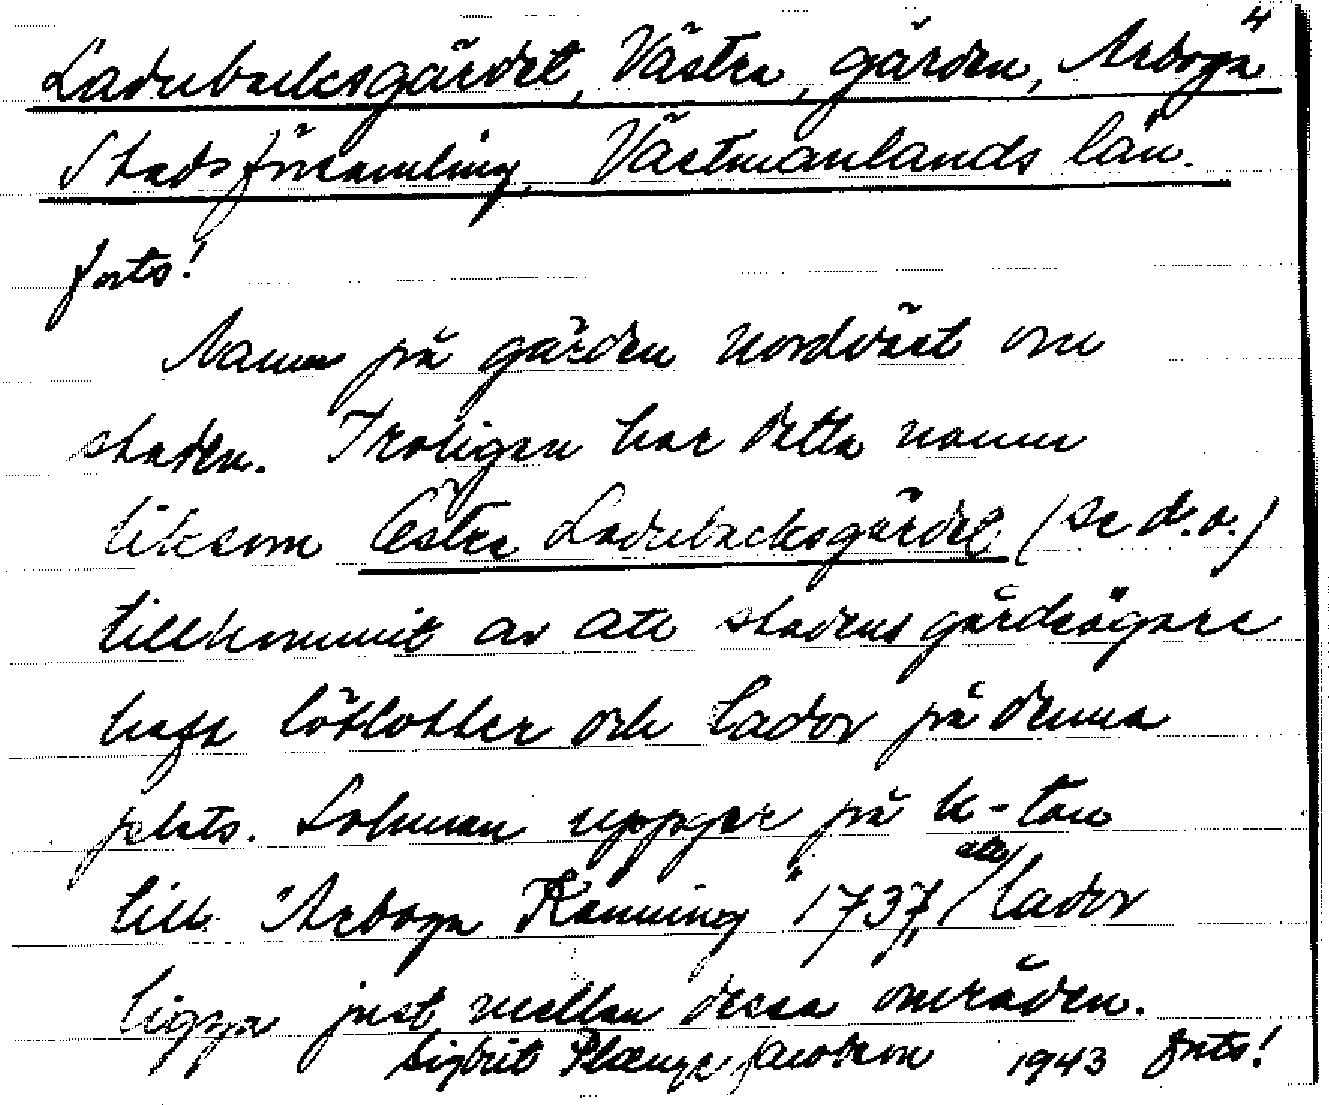 4
Ladubacksgärdet, Västra, gärden, Arboga
Stadsförsamling, Västmanlands län.
forts!
Namn på gärden nordväst om
staden. Troligen har detta namn
liksom Östra Ladubacksgärdet (se d.o.)
tillkommit av att stadens gårdsägare
haft lötlotter och lador på denna
plats. Lohman uppger på k-tan
till "Arboga Känning" 1737, att lador
ligga just mellan dessa områden.
Sigbrit Plænge Jacobson 1943 forts!